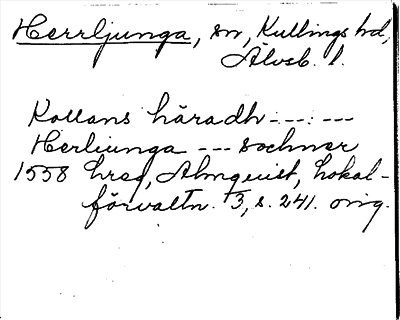 Herrljunga, sn, Kullings hd,
Älvsb. l.
Kollans häradh -----
Herliunga --- sochner
1558 hrsg, Almquist, Lokal-
förvaltn. 3, s. 241. orig.